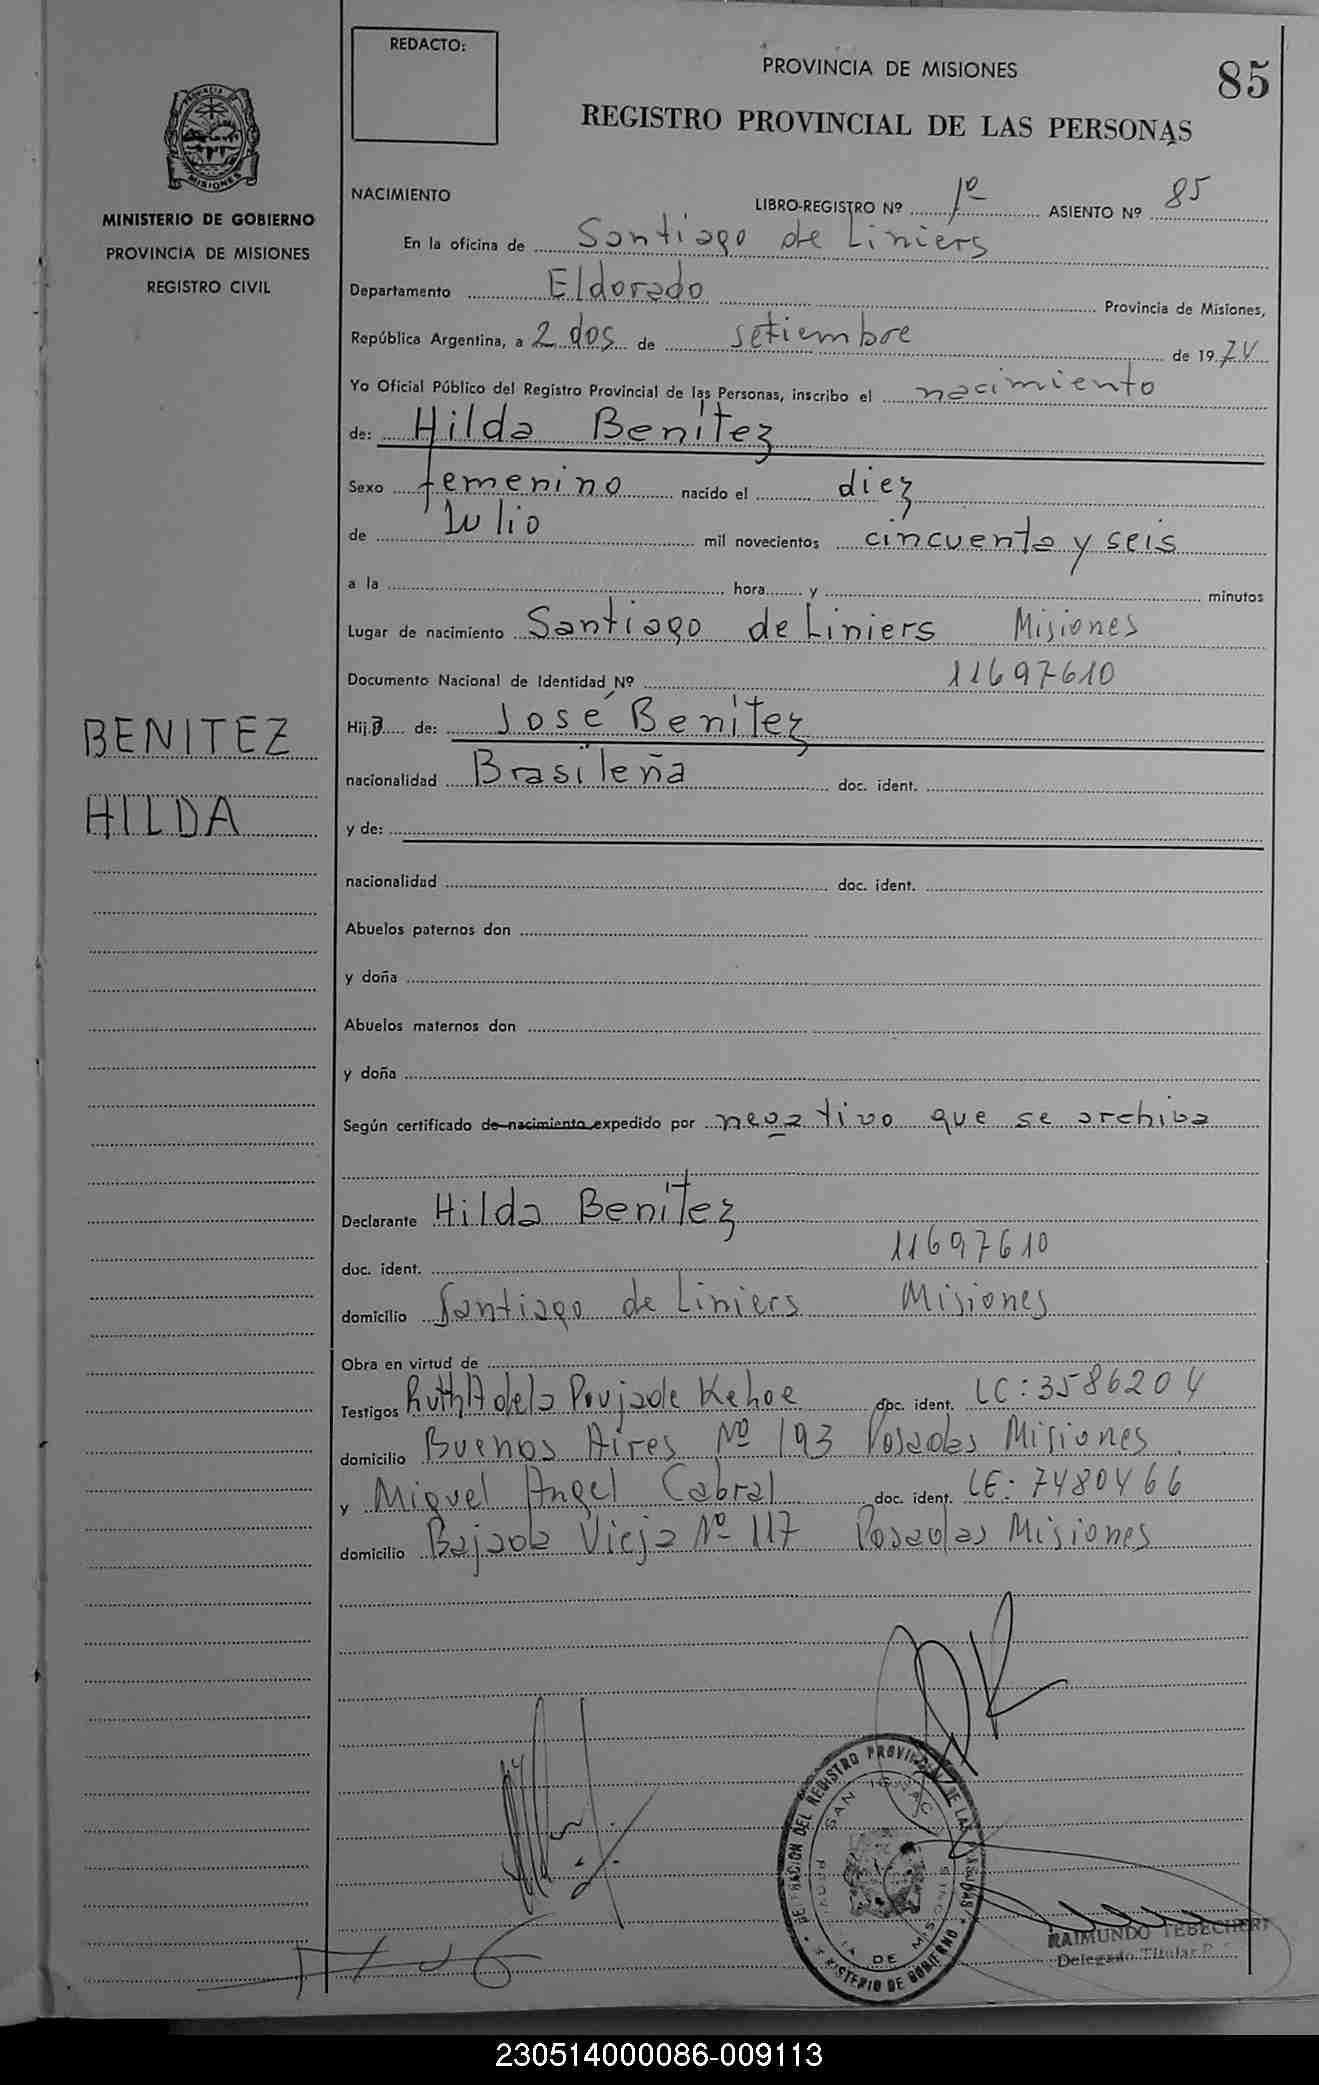 REDACTO:
PROVINCIA DE MISIONES
85
REGISTRO PROVINCIAL DE LAS PERSONAS
PROVINCIA DE
MISIONES
MINISTERIO DE GOBIERNO
PROVINCIA DE MISIONES
REGISTRO CIVIL
NACIMIENTO
LIBRO-REGISTRO Nº 1º ASIENTO Nº 85
En la oficina de Santiago de Liniers
Departamento Eldorado Provincia de Misiones,
República Argentina, a 2 dos de setiembre de 1974
Yo Oficial Público del Registro Provincial de las Personas, inscribo el nacimiento
de: Hilda Benítez
Sexo femenino nacido el diez
de Julio mil novecientos cincuenta y seis
a la hora y minutos
Lugar de nacimiento Santiago de Liniers Misiones
Documento Nacional de Identidad Nº 11697610
Hija de: José Benítez
nacionalidad Brasileña doc. ident.
y de:
nacionalidad doc. ident.
Abuelos paternos don
y doña
Abuelos maternos don
y doña
Según certificado de nacimiento expedido por negativo que se archiba
Declarante Hilda Benítez
doc. ident. 11697610
domicilio Santiago de Liniers Misiones
Obra en virtud de
Testigos Ruth A dela Poujade Kehoe doc. ident. LC: 3586204
domicilio Buenos Aires Nº 193 Posadas Misiones
y Miguel Angel Cabral doc. ident. LE: 7480466
domicilio Bajada Vieja Nº 117 Posadas Misiones
BENITEZ
HILDA
DEL REGISTRO PROVINCIAL DE LAS PERSONAS
SAN IGNACIO
DE MISIONES
MINISTERIO DE GOBIERNO
RAIMUNDO
Delegado Titular
230514000086-009113